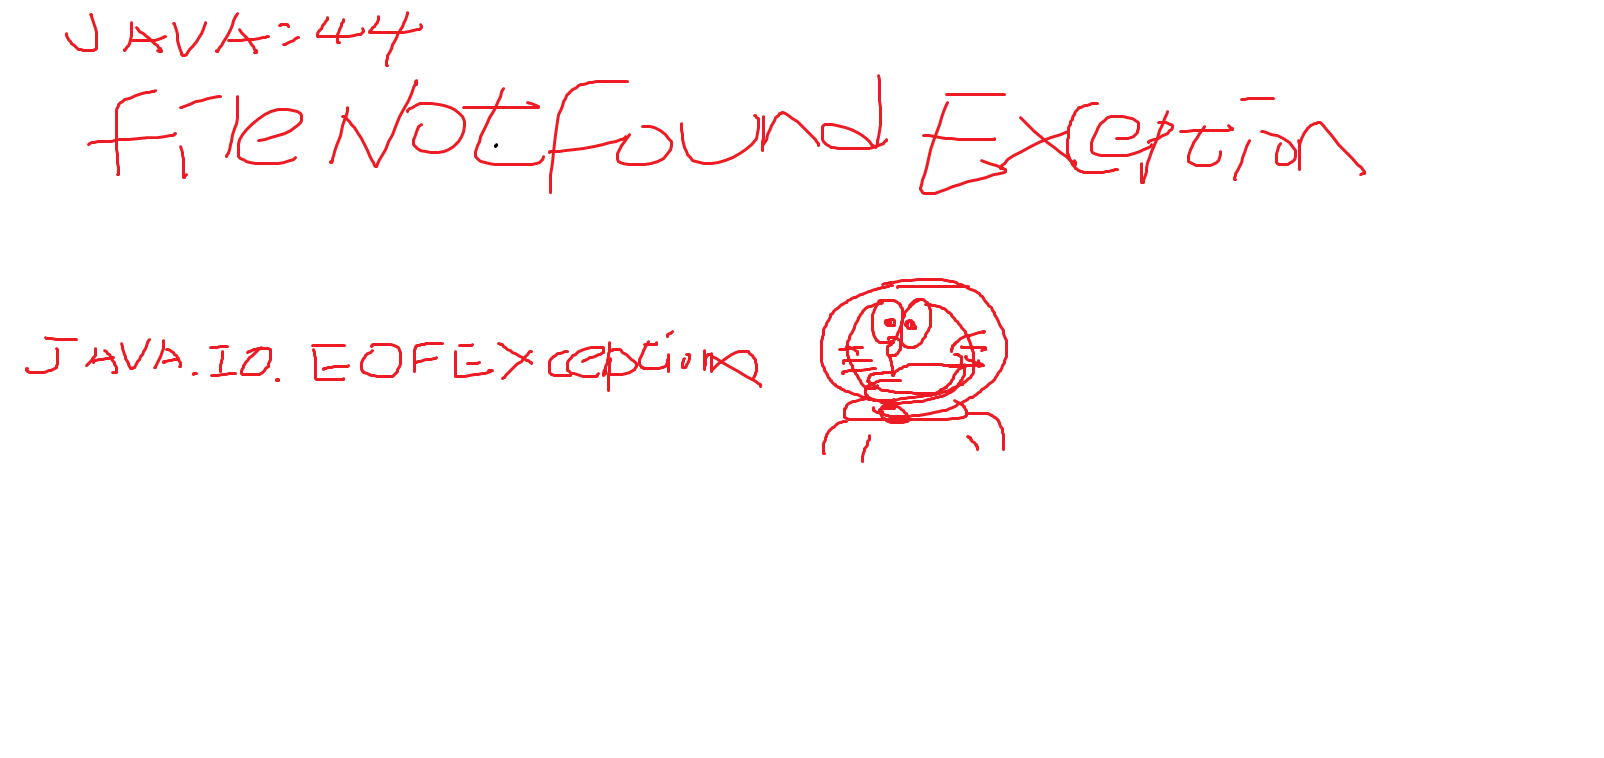 JAVA:44
FileNotFound Exception
JAVA.IO.EOFException